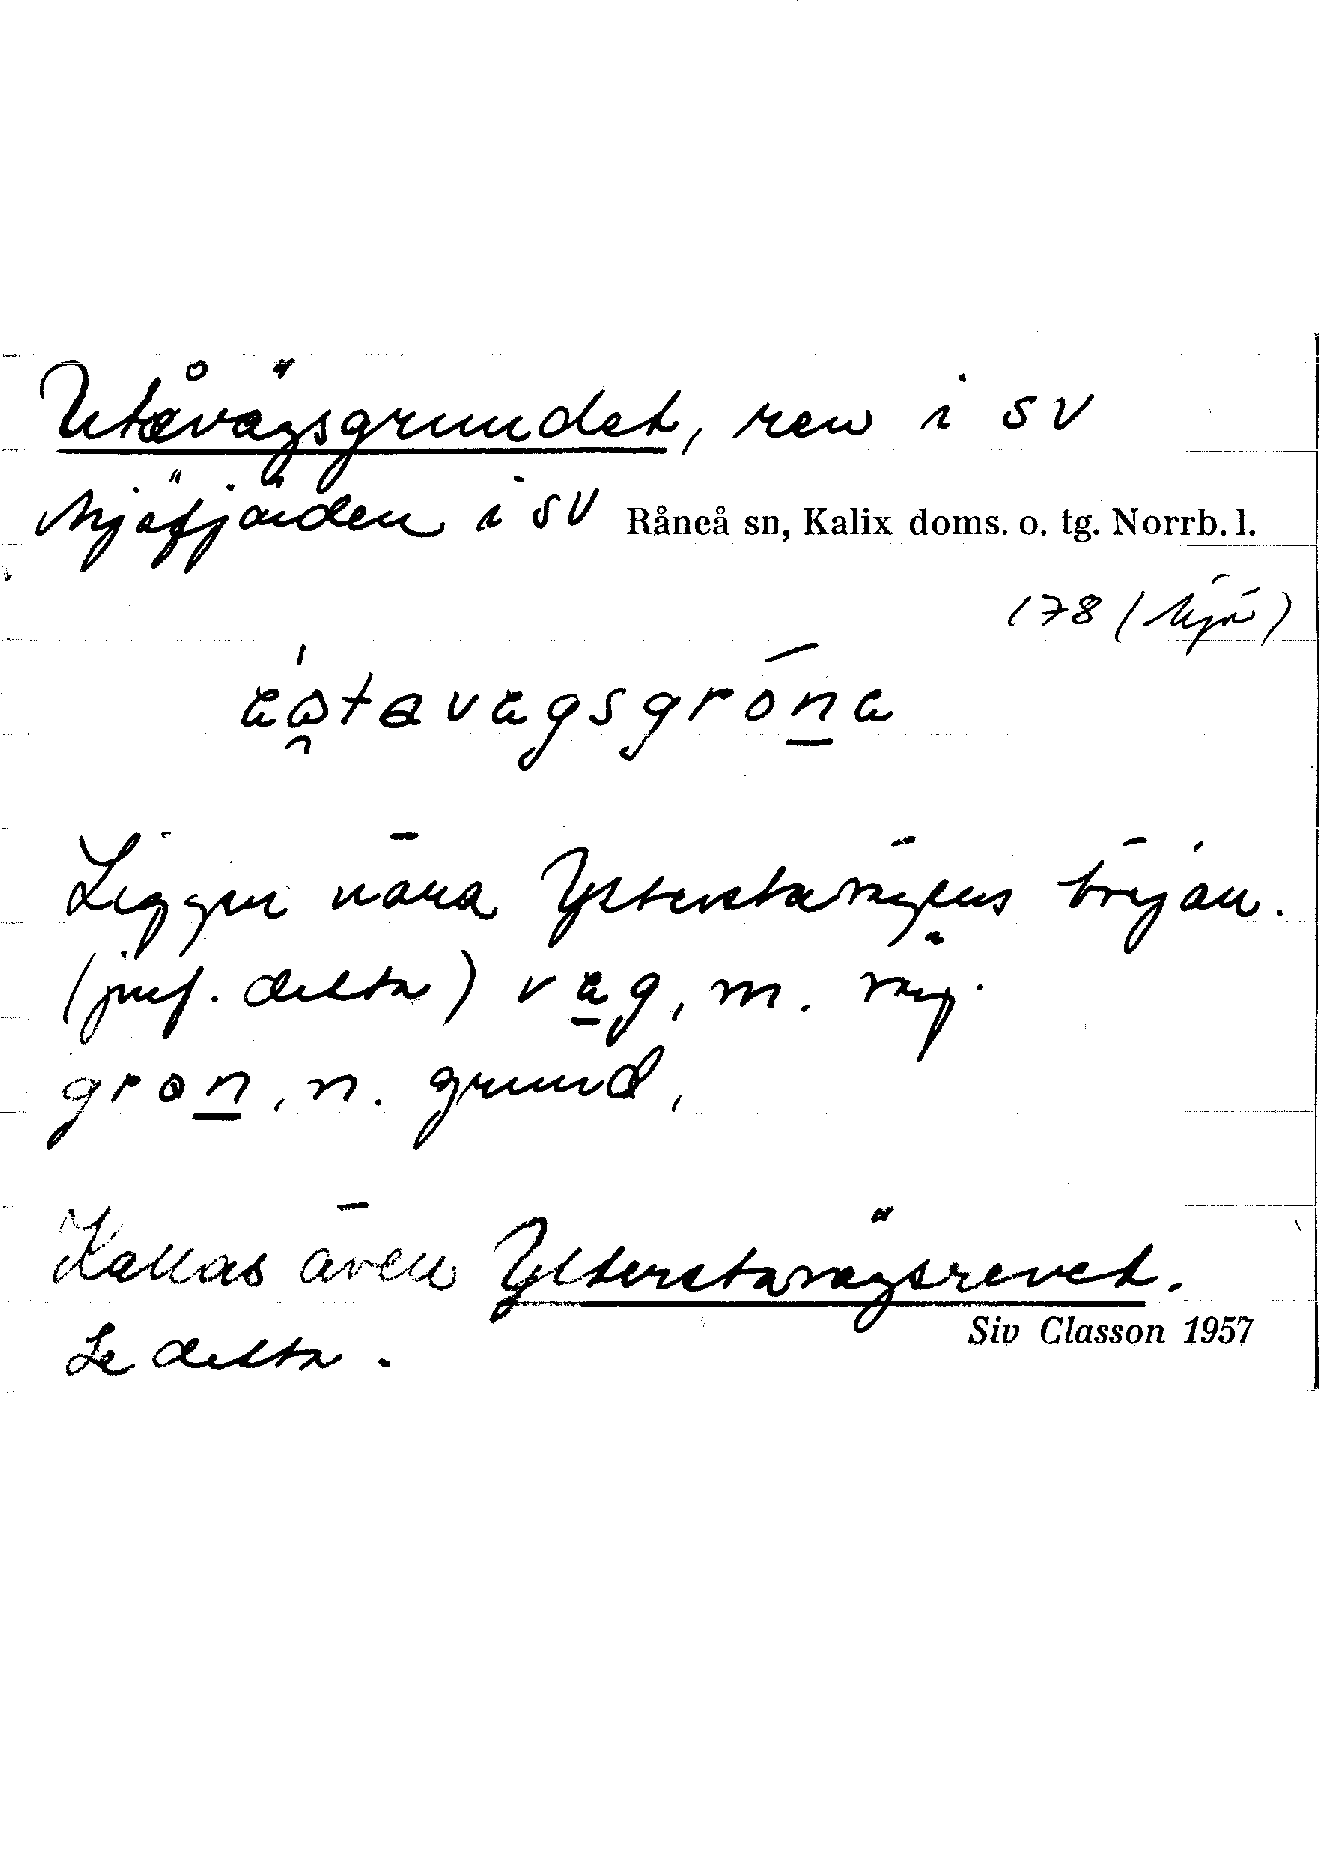 Utåvägsgrundet, rev i SV
Mjöfjärden i SV Råneå sn, Kalix doms. o. tg. Norrb. l.
178 (Mjö)
Ligger nära Ytterstavägens början.
(jmf. detta) väg, m. väg.
gron, n. grund,
Kallas även Ytterstavägsrevet.
Se detta.
Siv Classon 1957